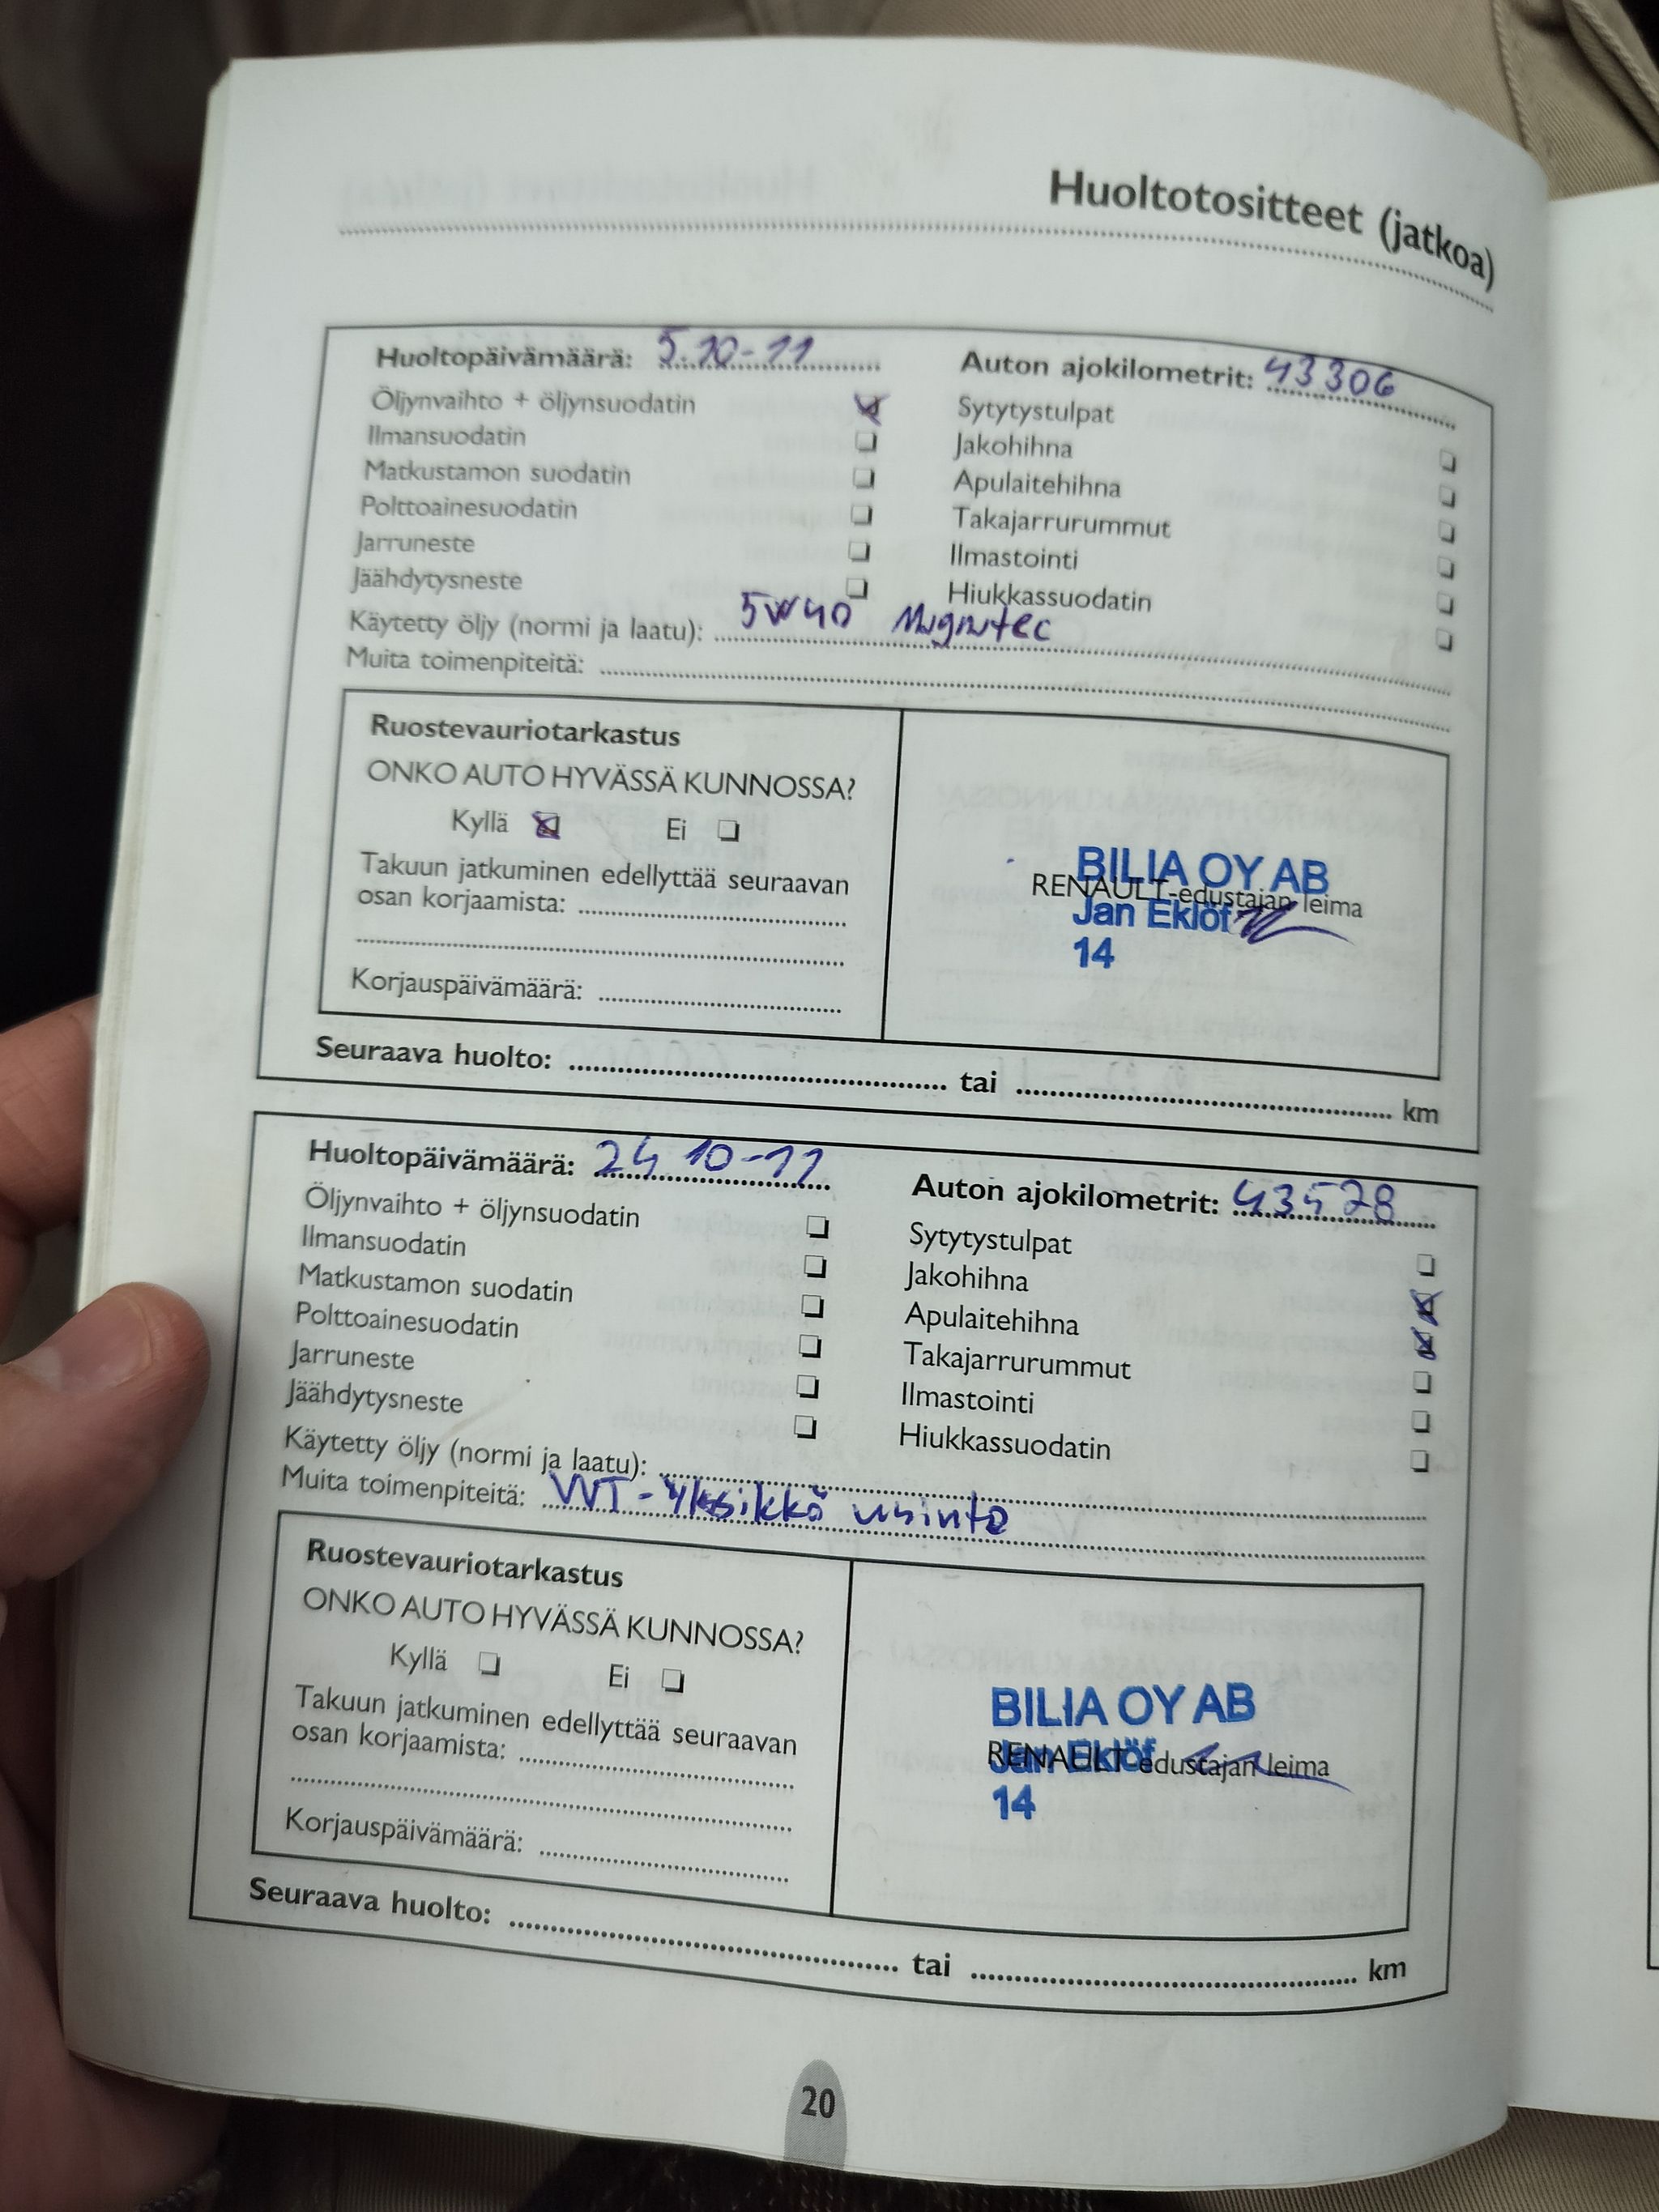 Huoltotositteet (jatkoa)
Huoltopäivämäärä: 5.10-11
Auton ajokilometrit: 43306
Öljynvaihto + öljynsuodatin
Ilmansuodatin
Matkustamon suodatin
Polttoainesuodatin
Jarruneste
Jäähdytysneste
Sytytystulpat
Jakohihna
Apulaitehihna
Takajarrurummut
Ilmastointi
Hiukkassuodatin
Käytetty öljy (normi ja laatu): 5W40
Muita toimenpiteitä:
Ruostevauriotarkastus
ONKO AUTO HYVÄSSÄ KUNNOSSA?
Kyllä Ei
Takuun jatkuminen edellyttää seuraavan
osan korjaamista:
Korjauspäivämäärä:
BILIA OY AB
RENAULT-edustajan leima
Jan Eklöf
14
Seuraava huolto: tai km
Huoltopäivämäärä: 24 10-11
Auton ajokilometrit: 43528
Öljynvaihto + öljynsuodatin
Ilmansuodatin
Matkustamon suodatin
Polttoainesuodatin
Jarruneste
Jäähdytysneste
Sytytystulpat
Jakohihna
Apulaitehihna
Takajarrurummut
Ilmastointi
Hiukkassuodatin
Käytetty öljy (normi ja laatu):
Muita toimenpiteitä: VVT-yksikkö uusinta
Ruostevauriotarkastus
ONKO AUTO HYVÄSSÄ KUNNOSSA?
Kyllä Ei
Takuun jatkuminen edellyttää seuraavan
osan korjaamista:
Korjauspäivämäärä:
BILIA OY AB
RENAULT-edustajan leima
Jan Eklöf
14
Seuraava huolto: tai km
20